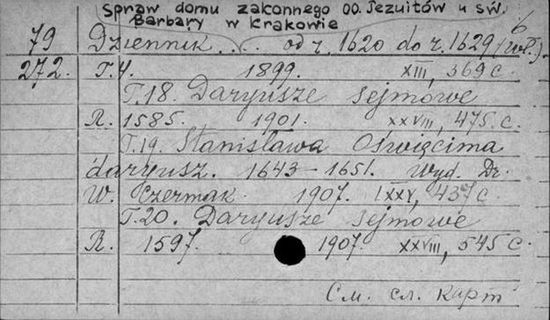 Spraw domu zakonnego OO. Jezuitów u św.
Barbary w Krakowie
79 Dziennik . . . . od r. 1620 do r. 1629
272. T. 4. 1899. XIII, 369 c
T. 18. Daryusze sejmowe
R. 1585. 1901. XXVIII, 475. c.
T. 19. Stanisława Oświęcima
daryusz. 1643 – 1651. Wyd. Dr.
W. Czermak. 1907. 437 c
T. 20. Daryusze sejmowe
R. 1597. 1907. XXVIII, 545 c.
См. сл. карт